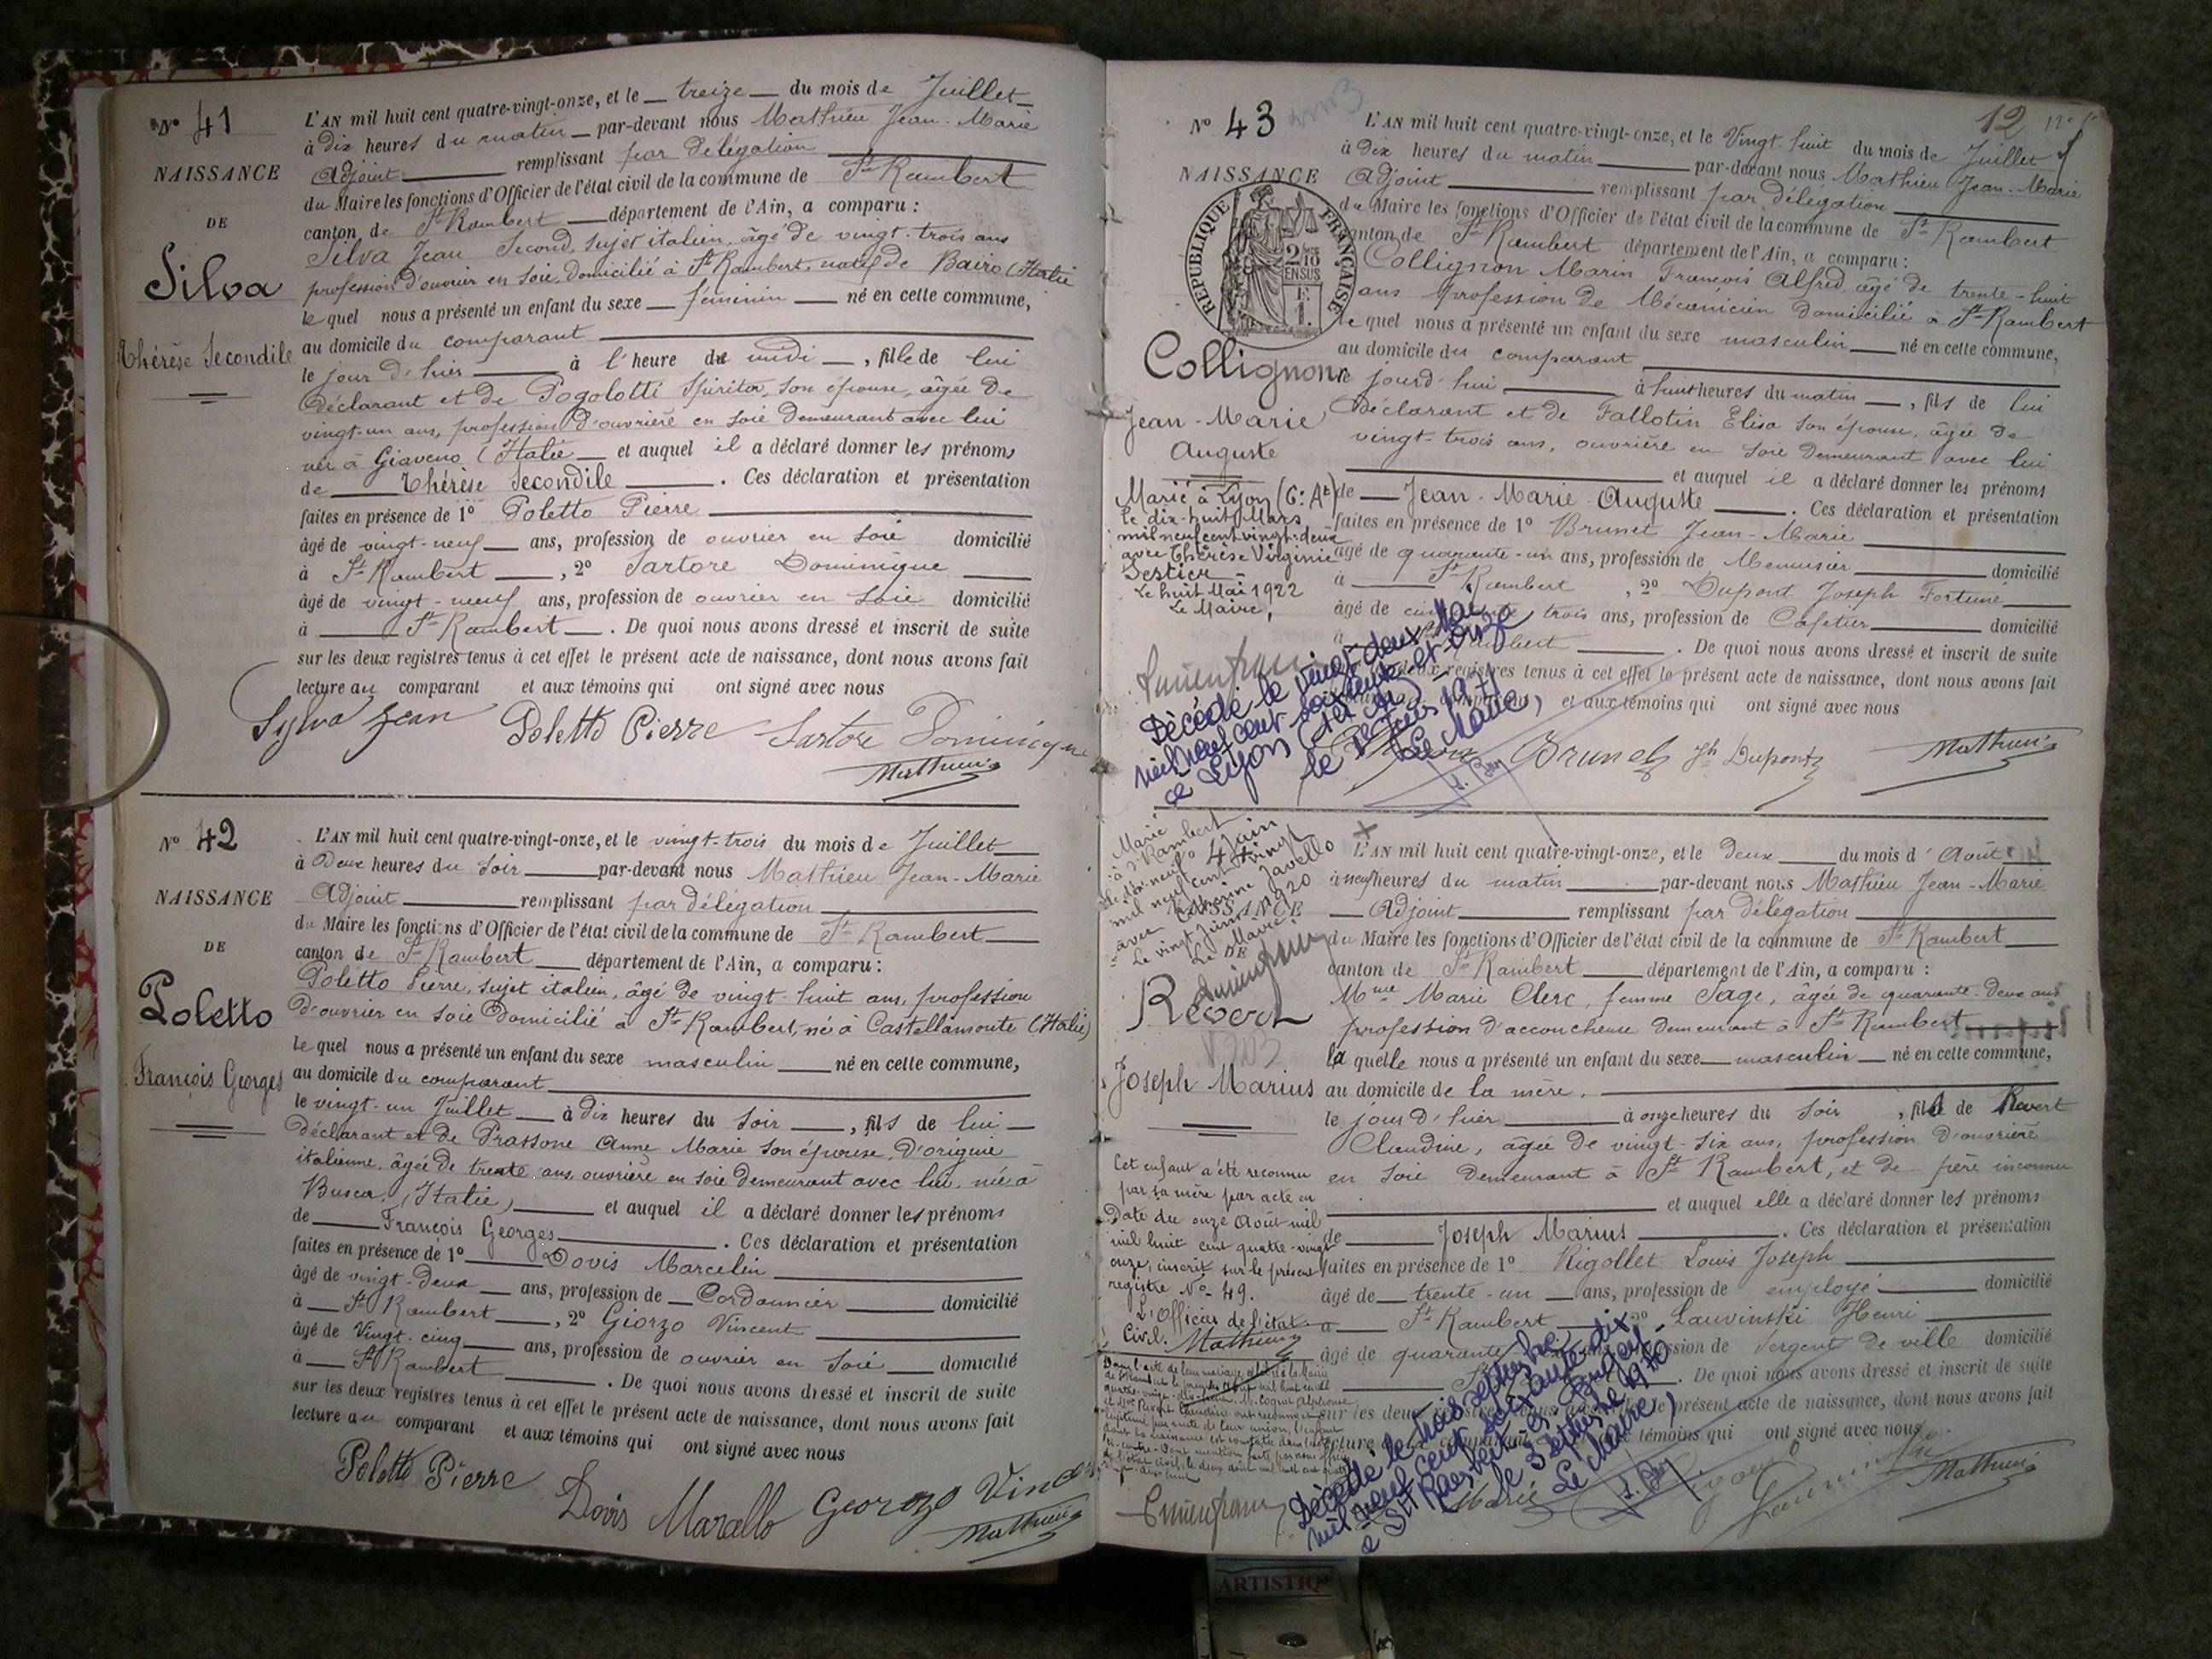 N° 41
NAISSANCE
DE
Silva
Thérèse Secondile
L'AN mil huit cent quatre-vingt-onze, et le treize du mois de Juillet
à dix heures du matin par-devant nous Mathieu Jean-Marie
Adjoint remplissant par délégation
du Maire les fonctions d'Officier de l'état civil de la commune de St Rambert
canton de St Rambert département de l'Ain, a comparu :
Silva Jean Second, sujet italien, âgé de vingt-trois ans
profession d'ouvrier en soie, domicilié à St Rambert, natif de Bairo (Italie
le quel nous a présenté un enfant du sexe féminin né en cette commune,
au domicile du comparant
le jour d'hier à l'heure de midi, fille de lui
déclarant et de Pogolotti Spirita, son épouse, âgée de
vingt-un ans, profession d'ouvrière en soie demeurant avec lui
née à Giaveno (Italie et auquel il a déclaré donner les prénoms
de Thérèse Secondile. Ces déclaration et présentation
faites en présence de 1° Poletto Pierre
âgé de vingt-neuf ans, profession de ouvrier en soie domicilié
à St Rambert, 2° Sartore Dominique
âgé de vingt-neuf ans, profession de ouvrier en soie domicilié
à St Rambert. De quoi nous avons dressé et inscrit de suite
sur les deux registres tenus à cet effet le présent acte de naissance, dont nous avons fait
lecture au comparant et aux témoins qui ont signé avec nous
Sylva Jean Poletto Pierre Sartore Dominique
Mathieu
N° 42
NAISSANCE
DE
Poletto
François Georges
L'AN mil huit cent quatre-vingt-onze, et le vingt-trois du mois de Juillet
à Deux heures du soir par-devant nous Mathieu Jean-Marie
Adjoint remplissant par délégation
du Maire les fonctions d'Officier de l'état civil de la commune de St Rambert
canton de St Rambert département de l'Ain, a comparu :
Poletto Pierre, sujet italien, âgé de vingt-huit ans, profession
d'ouvrier en soie domicilié à St Rambert, né à Castellamonte (Italie)
le quel nous a présenté un enfant du sexe masculin né en cette commune,
au domicile du comparant
le vingt-un Juillet à dix heures du soir, fils de lui
déclarant et de Prassone Anne Marie son épouse, d'origine
italienne, âgée de trente ans, ouvrière en soie demeurant avec lui, née à
Busca, (Italie) et auquel il a déclaré donner les prénoms
de François Georges. Ces déclaration et présentation
faites en présence de 1° Dovis Marcelin
âgé de vingt-deux ans, profession de Cordonnier domicilié
à St Rambert, 2° Giorzo Vincent
âgé de Vingt-cinq ans, profession de ouvrier en soie domicilié
à St Rambert. De quoi nous avons dressé et inscrit de suite
sur les deux registres tenus à cet effet le présent acte de naissance, dont nous avons fait
lecture au comparant et aux témoins qui ont signé avec nous
Poletto Pierre Dovis Marcello Georzo
Mathieu
12
N° 43
NAISSANCE
REPUBLIQUE FRANÇAISE
2/10 EN SUS
Collignon
Jean-Marie
Auguste
Marié à Lyon (6e At)
le dix-huit Mars
mil neuf cent vingt-deux
avec Thérèse Virginie
Sestier
Le huit Mai 1922
Le Maire,
L'AN mil huit cent quatre-vingt-onze, et le Vingt-huit du mois de Juillet
à dix heures du matin par-devant nous Mathieu Jean-Marie
Adjoint remplissant par délégation
du Maire les fonctions d'Officier de l'état civil de la commune de St Rambert
canton de St Rambert département de l'Ain, a comparu :
Collignon Marin François Alfred, âgé de trente-huit
ans profession de Mécanicien domicilié à St Rambert
le quel nous a présenté un enfant du sexe masculin né en cette commune,
au domicile du comparant
le jourd'hui à huit heures du matin, fils de lui
déclarant et de Fallotin Elisa son épouse, âgée de
vingt-trois ans, ouvrière en soie demeurant avec lui
et auquel il a déclaré donner les prénoms
de Jean-Marie-Auguste. Ces déclaration et présentation
faites en présence de 1° Brunet Jean-Marie
âgé de quarante-un ans, profession de Menuisier domicilié
à St Rambert, 2° Dupont Joseph Fortuné
âgé de trois ans, profession de Cafetier domicilié
De quoi nous avons dressé et inscrit de suite
registres tenus à cet effet le présent acte de naissance, dont nous avons fait
et aux témoins qui ont signé avec nous
Décédé le vingt deux Mai
mil neuf cent soixante et onze
à Lyon
le 1er Juin 1971
Le Maire,
Brunet Jh Dupont Mathieu
Marié
à St Rambert
avec Catherine Javello
Le vingt Juin 1920
Le Maire
NAISSANCE
DE
Revert
Joseph Marius
Cet enfant a été reconnu
par sa mère par acte en
Date du onze Août mil
mil huit cent quatre-vingt
onze, inscrit sur le présent
registre N° 49.
L'Officier de l'état
Civil. Mathieu
L'AN mil huit cent quatre-vingt-onze, et le deux du mois d'Août
à neuf heures du matin par-devant nous Mathieu Jean-Marie
Adjoint remplissant par délégation
du Maire les fonctions d'Officier de l'état civil de la commune de St Rambert
canton de St Rambert département de l'Ain, a comparu :
Mme Marie Clerc, femme Sage, âgée de quarante-deux ans
profession d'accoucheuse demeurant à St Rambert
la quelle nous a présenté un enfant du sexe masculin né en cette commune,
au domicile de la mère.
le jour d'hier à onze heures du soir, fils de Revert
Claudine, âgée de vingt-six ans, profession d'ouvrière
en soie demeurant à St Rambert, et de père inconnu
et auquel elle a déclaré donner les prénoms
de Joseph Marius. Ces déclaration et présentation
faites en présence de 1° Rigollet Louis Joseph
âgé de trente-un ans, profession de employé domicilié
à St Rambert 2° Lauvinski Henri
âgé de quarante profession de Sergent de ville domicilié
De quoi nous avons dressé et inscrit de suite
sur les deux registres tenus à cet effet le présent acte de naissance, dont nous avons fait
lecture témoins qui ont signé avec nous
Décédé le trois septembre
mil neuf cent soixante dix
à St Rambert en Bugey
le 3 septembre 1970
Le Maire,
Mathieu
ARTISTIQ